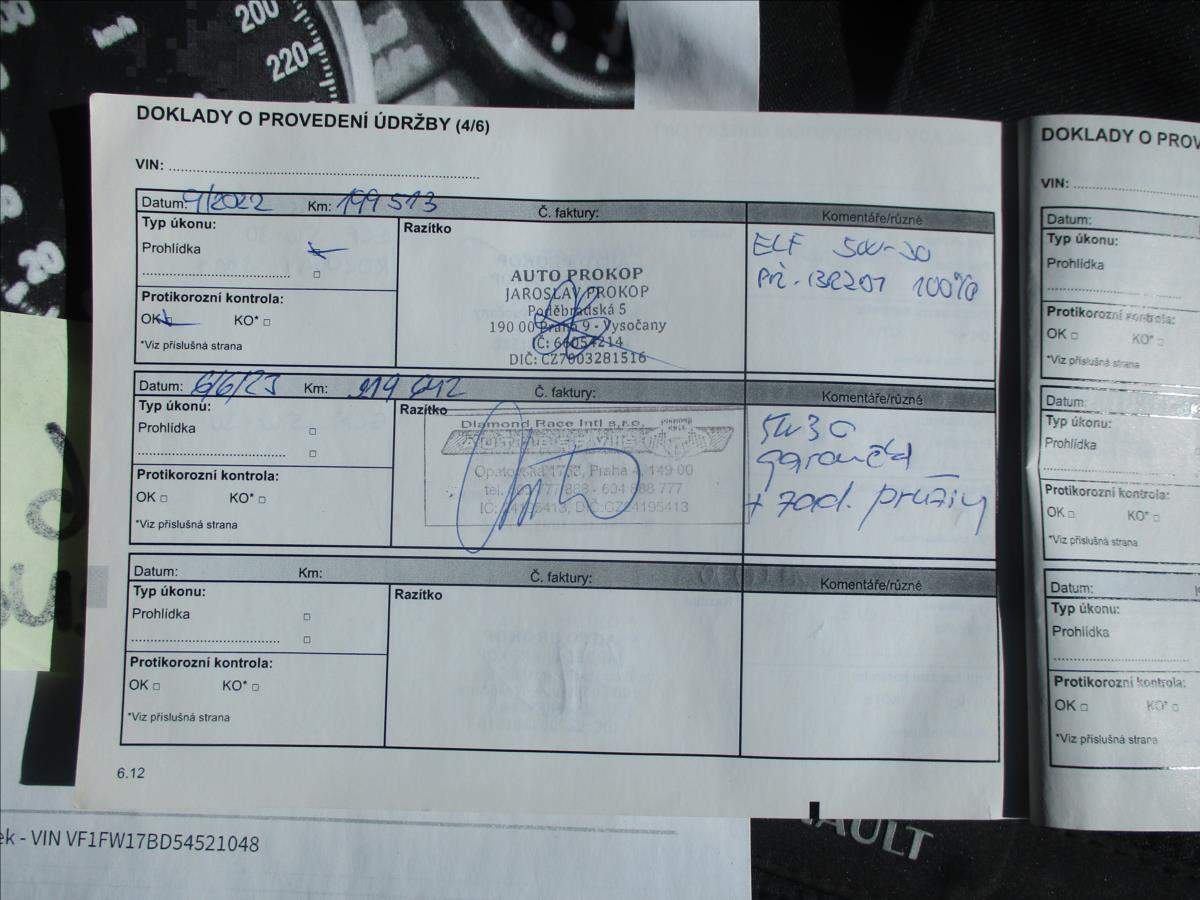 200
220
20
DOKLADY O PROVEDENÍ ÚDRŽBY (4/6)
VIN:
Datum: 9/2022 Km: 199 513 Č. faktury: Komentáře/různé
Typ úkonu:
Prohlídka
Razítko
AUTO PROKOP
JAROSLAV PROKOP
Poděbradská 5
190 00 Praha 9 - Vysočany
IČ: 66054214
DIČ: CZ7003281516
ELF 5W-30
100%
Protikorozní kontrola:
OK KO*
*Viz příslušná strana
Datum: 6/6/23 Km: 219 642 Č. faktury: Komentáře/různé
Typ úkonu:
Prohlídka
Razítko
Diamond Race Intl s.r.o.
Praha 4, 149 00
DIČ:CZ24195413
5W30
+ zad. pružiny
Protikorozní kontrola:
OK KO*
*Viz příslušná strana
Datum: Km: Č. faktury: Komentáře/různé
Typ úkonu:
Prohlídka
Razítko
Protikorozní kontrola:
OK KO*
*Viz příslušná strana
6.12
DOKLADY O PROV
VIN:
Datum:
Typ úkonu:
Prohlídka
Protikorozní kontrola:
OK KO*
*Viz příslušná strana
Datum:
Typ úkonu:
Prohlídka
Protikorozní kontrola:
OK KO*
*Viz příslušná strana
Datum:
Typ úkonu:
Prohlídka
Protikorozní kontrola:
OK KO*
*Viz příslušná strana
ek - VIN VF1FW17BD54521048
NAULT